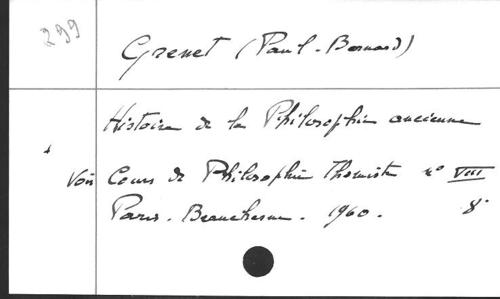 299
Grenet (Paul-Bernard)
Histoire de la Philosophie ancienne
Voir Cours de Philosophie Thomiste n° VIII
Paris. Beauchesne. 1960. 8°